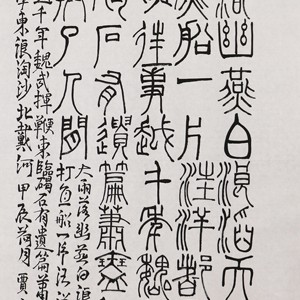 落幽燕白浪滔天
魚船一片汪洋都
往事越千年魏
石有遺篇蕭瑟
換了人間
大雨落幽燕白浪
打魚船一片汪洋
千年魏武揮鞭東臨碣石有遺篇蕭
東浪淘沙北戴河 甲辰荷月 賈